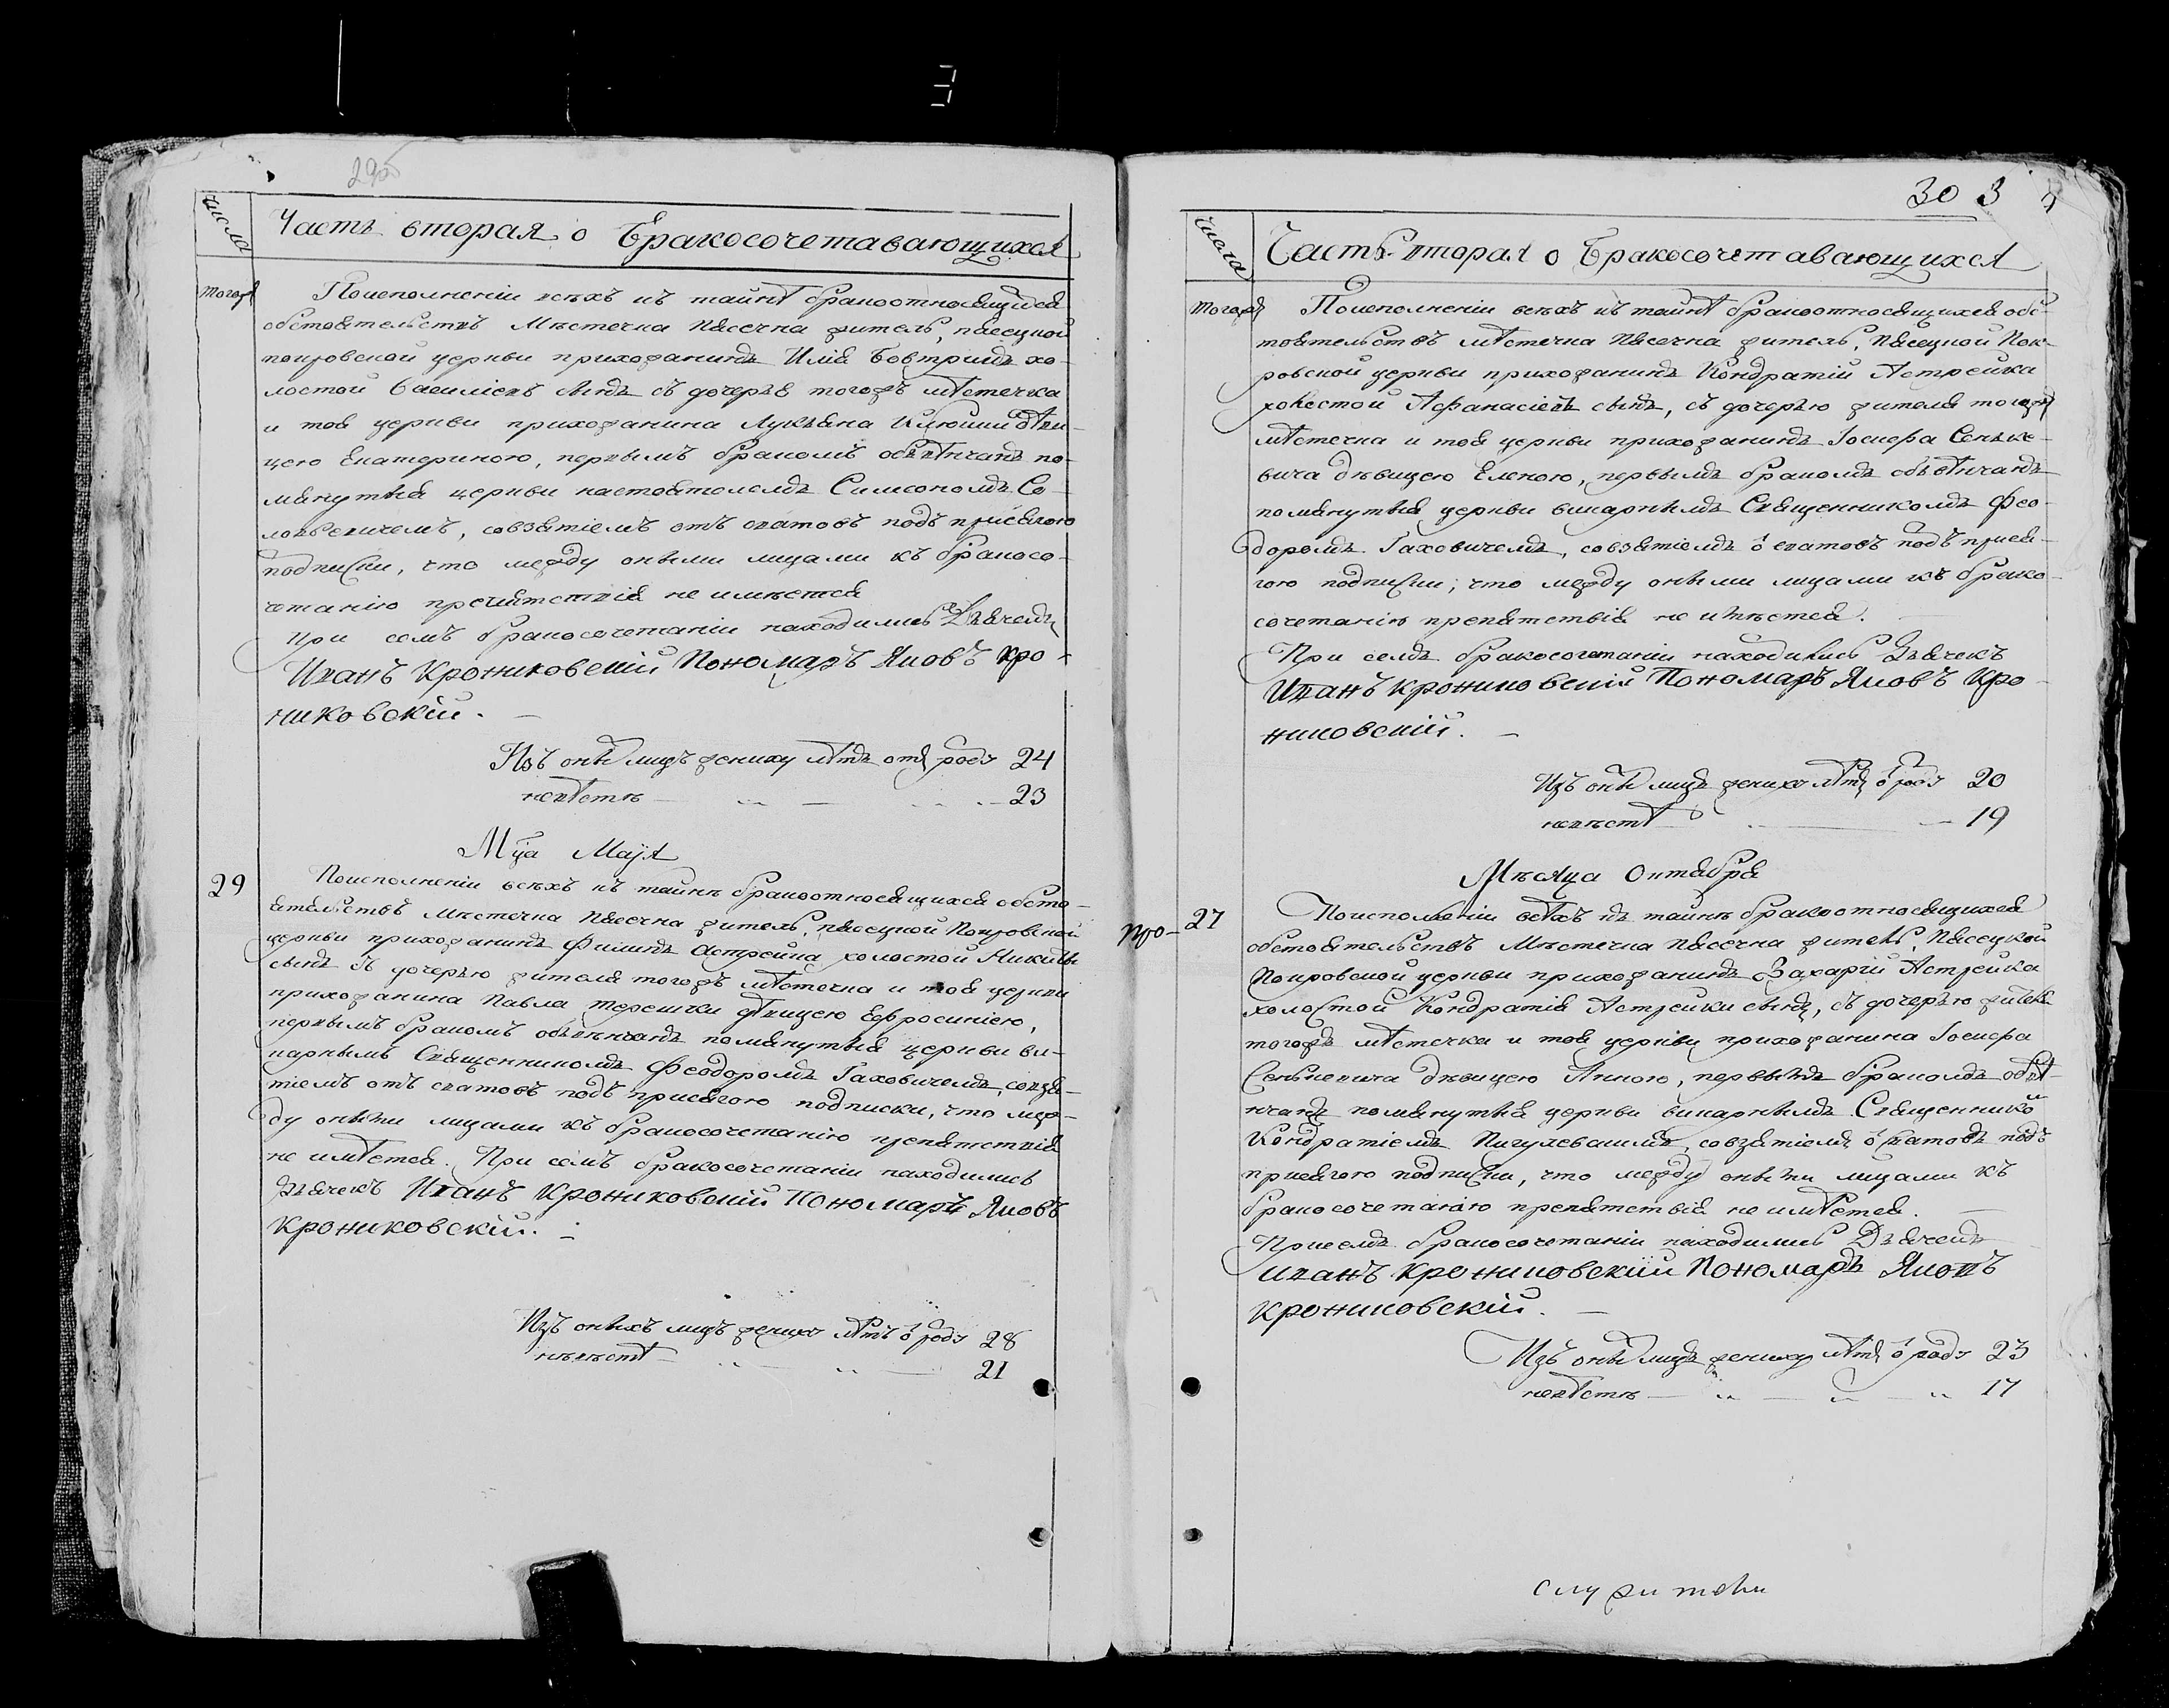 29об
числа
Часть вторая о Бракосочетавающихся
тогож
Поисполненіи всѣхъ къ тайнѣ бракоотносящихся
обстоятельствъ Мѣстечка Пясечна житель, пясецкой
покровской церкви прихожанинъ Илія Бовтримъ хо-
лостой Василіевъ сынъ съ дочерью тогожъ мѣстечка
и тоя церкви прихожанина Лукьяна дѣви-
цею Екатериною, первымъ бракомъ обвѣнчанъ по-
мянутыя церкви настоятелемъ Симеономъ Со-
ловьевичемъ, совзятіемъ отъ сватовъ подъ присягою
подписки, что между оными лицами къ бракосо-
четанію препятствія не имѣется
При семъ бракосочетаніи находились Дьячекъ
Иванъ Крониковскій Пономаръ Яковъ Кро-
никовскій.
Изъ оны лицъ жениху лѣтъ отъ роду 24
невѣстѣ 23
Мца Маїя
29
Поисполненіи всѣхъ къ тайнѣ бракоотносящихся обсто-
ятельствъ Мѣстечка Пясечна житель, пясецкой Покровской
церкви прихожанинъ Филипъ Астрейка холостой Никиты
сынъ съ дочерью жителя тогожъ мѣстечка и тоя церкви
прихожанина Павла Терешки дѣвицею Ефросиніею,
первымъ бракомъ обвѣнчанъ помянутыя церкви ви-
карнымъ Священникомъ Феодоромъ Гаховичемъ, совзя-
тіемъ отъ сватовъ подъ присягою подписки, что меж-
ду оными лицами къ бракосочетанію препятствія
не имѣется. При семъ бракосочетаніи находились
Дьячекъ Иванъ Крониковскій Пономаръ Яковъ
Крониковскій.
Изъ оныхъ лицъ жениху лѣтъ о роду 28
невѣстѣ 21
30 3
числа
Часть вторая о Бракосочетавающихся
тогож
Поисполненіи всѣхъ къ тайнѣ бракоотносящихся обс-
тоятельствъ мѣстечка Пясечна житель, Пясецкой Пок-
ровской церкви прихожанинъ Кондратій Астрейка
холостой Афанасіевъ сынъ, съ дочерью жителя тогож
мѣстечка и тоя церкви прихожанинъ Іосифа Сеньке-
вича дѣвицею Еленою, первымъ бракомъ обвѣнчанъ
помянутыя церкви викарнымъ Священникомъ Фео-
доромъ Гаховичемъ, совзятіемъ о сватовъ подъ прися-
гою подписки, что между оными лицами къ брако-
сочетанію препятствія не имѣется.
При семъ бракосочетаніи находились Дьячекъ
Иванъ Крониковскій Пономаръ Яковъ Кро-
никовскій.
Изъ оны лицъ жениху лѣтъ о роду 20
невѣстѣ 19
Мѣсяца Октября
про- 27
Поисполненіи всѣхъ къ тайнѣ бракоотносящихся
обстоятельствъ Мѣстечка Пясечна житель, Пясецкой
Покровской церкви прихожанинъ Захарій Астрейка
холостой Кондратія Астрейки сынъ, съ дочерью жителя
тогожъ мѣстечка и тоя церкви прихожанина Іосифа
Сенькевича дѣвицею Анною, первымъ бракомъ обвѣ-
нчанъ помянутыя церкви викарнымъ Священнико
Кондратіемъ совзятіемъ о сватовъ подъ
присягою подписки, что между оными лицами къ
бракосочетанію препятствія не имѣется.
Присемъ бракосочетаніи находились Дьячекъ
Иванъ Крониковскій Пономаръ Яковъ
Крониковскій.
Изъ оны лицъ жениху лѣтъ о роду 23
невѣстѣ 17